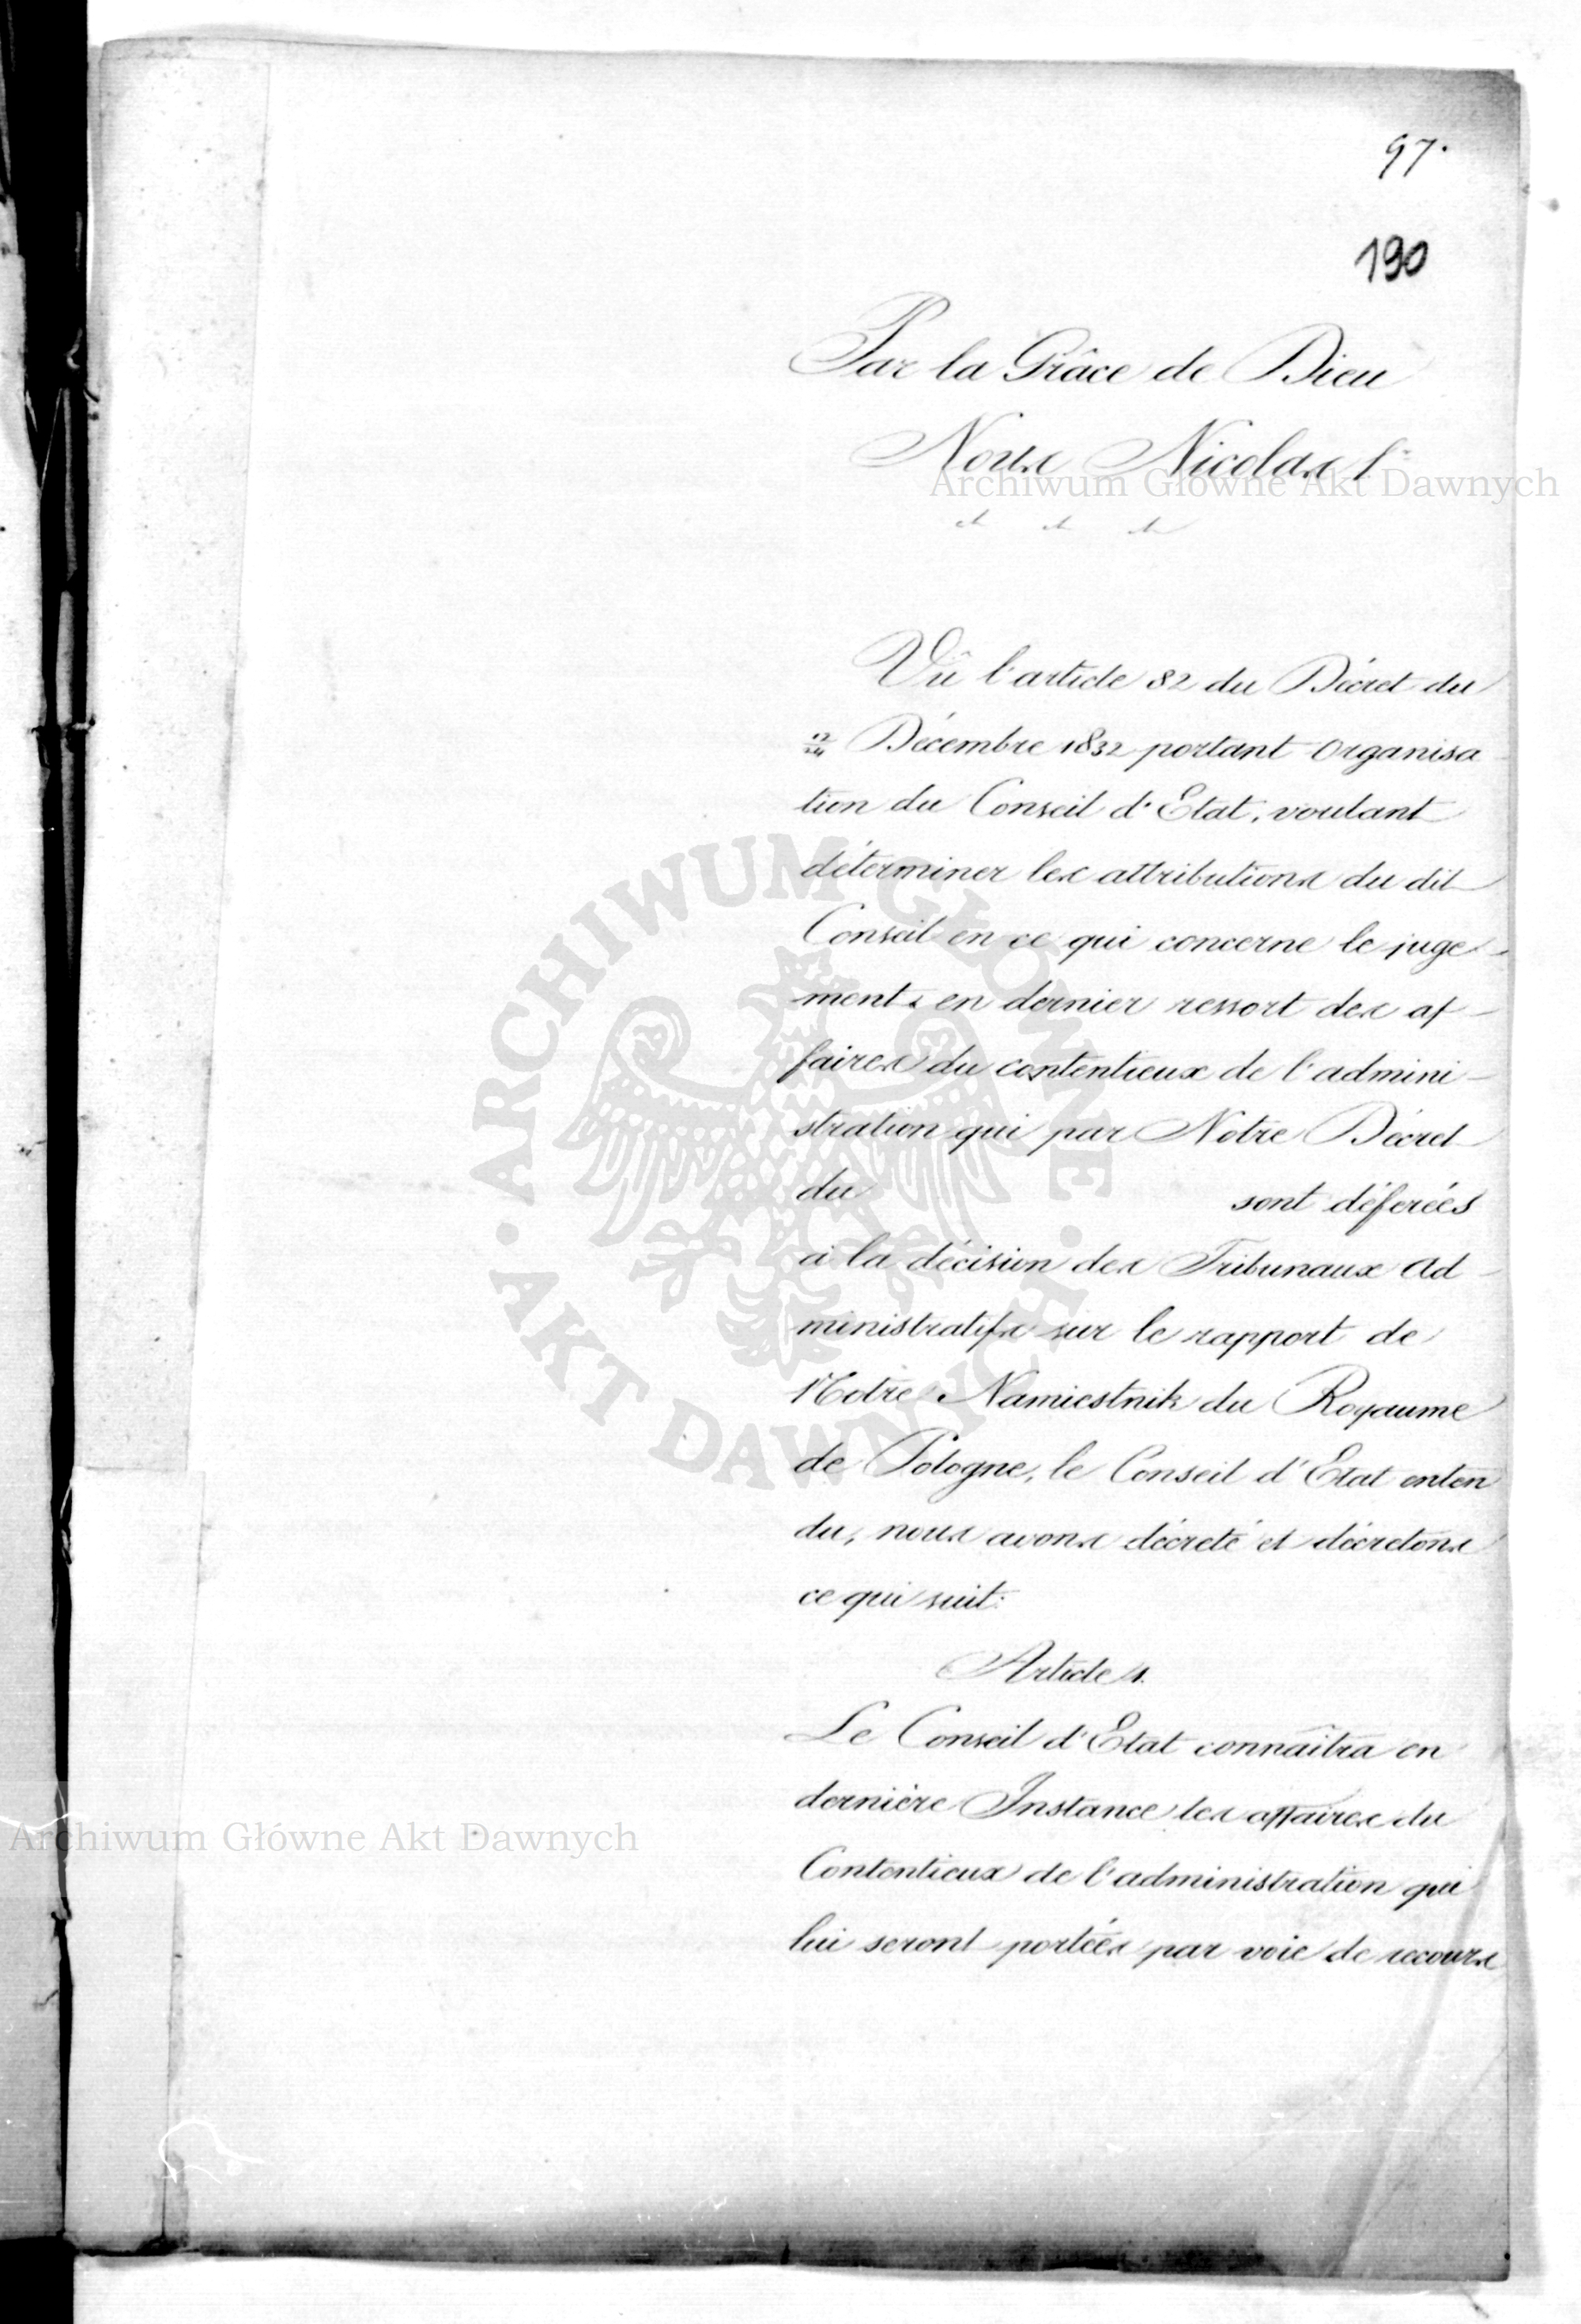 97.
190
Par la Grâce de Dieu
Nous Nicolas I<sup>r</sup>
Archiwum Główne Akt Dawnych
Vû l'article 82 du Décret du
12/24 Décembre 1832 portant Organisa
tion du Conseil d'Etat, voulant
déterminer les attributions du dit
Conseil en ce qui concerne le juge-
ment en dernier ressort des af-
faires du contentieux de l'admini-
stration qui par Notre Décret
du sont déferées
à la décision des Tribunaux Ad-
ministratifs sur le rapport de
Notre Namiestnik du Royaume
de Pologne, le Conseil d'Etat enten
du, nous avons décreté et décretons
ce qui suit:
ARCHIWUM GŁÓWNE AKT DAWNYCH
Article 1.
Le Conseil d'Etat connaîtra en
dernière Instance les affaires du
Archiwum Główne Akt Dawnych
Contentieux de l'administration qui
lui seront portées par voie de recours